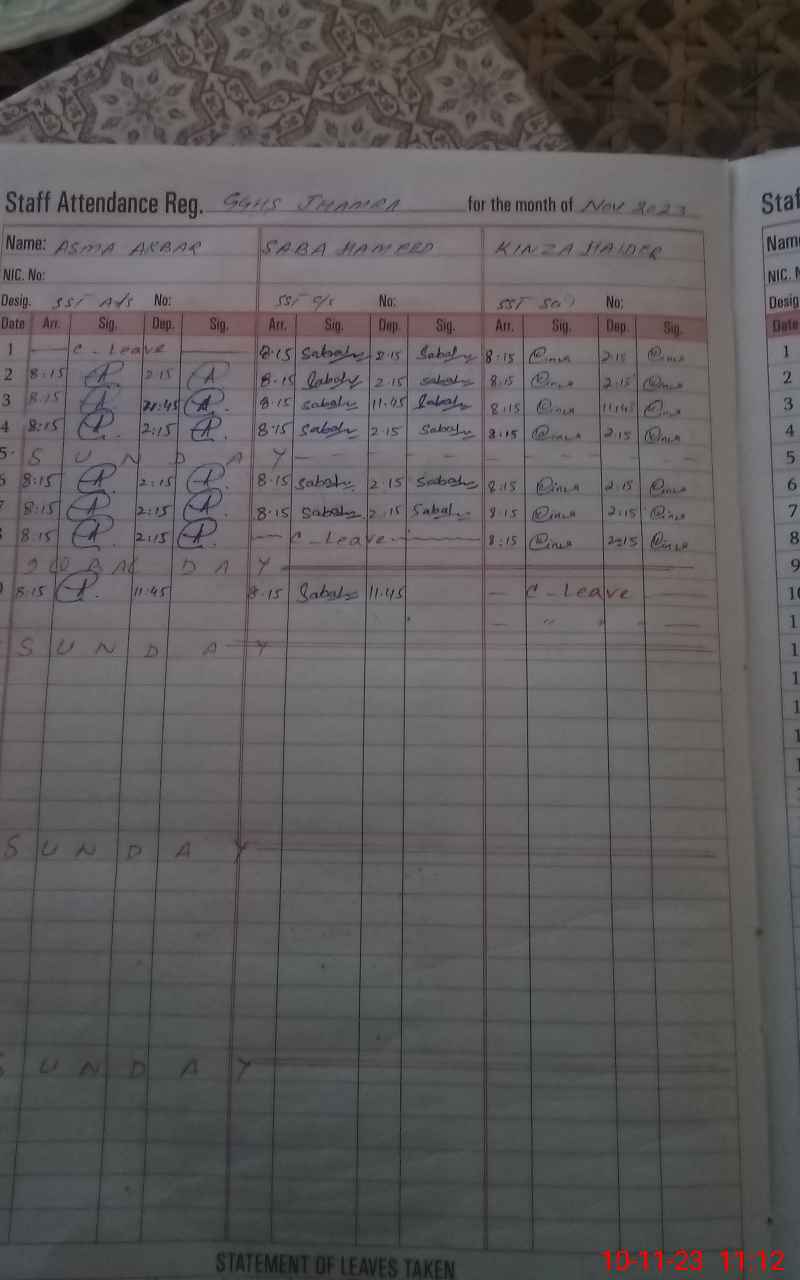 Staff Attendance Reg. GGHS JHAMRA for the month of Nov 2023 Staf
Name: ASMA AKBAR SABA HAMEED KINZA HAIDER Name
NIC. No: NIC. N
Desig. SST A/s No: SST C/s No: SST No: Desig
Date Arr. Sig. Dep. Sig. Arr. Sig. Dep. Sig. Arr. Sig. Dep. Sig. Date
1 — C - Leave — 8.15 Sabah 2.15 Sabah 8.15 2.15 1
2 8:15 2:15 8.15 Sabah 2.15 Sabah 8.15 2.15 2
3 8.15 11:45 8.15 Sabah 11.45 Sabah 8.15 11:45 3
4 8:15 2:15 8.15 Sabah 2.15 Sabah 8:15 2.15 4
5 S U N D A Y 5
6 8:15 2:15 8.15 Sabah 2.15 Sabah 8:15 2.15 6
7 8:15 2:15 8.15 Sabah 2.15 Sabah 8:15 2:15 7
8.15 2:15 — C - Leave — 8:15 2:15 8
D A Y 9
8.15 11.45 8.15 Sabah 11.45 — C - Leave — 10
— " " " — 1
S U N D A Y 1
1
1
1
1
S U N D A Y
S U N D A Y
STATEMENT OF LEAVES TAKEN
10-11-23 11:12